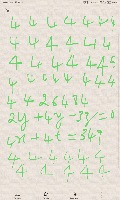 4 4 4 4 4 4 4
4 4 4 4 4 4
4 4 4 4 4 4 5
4 4 4 4 4 4 4
4 4 26484
2y + 4y - 3y = 0
4x + 4t = 34?
4 4 4 4 4 4
4 4 4 4 4